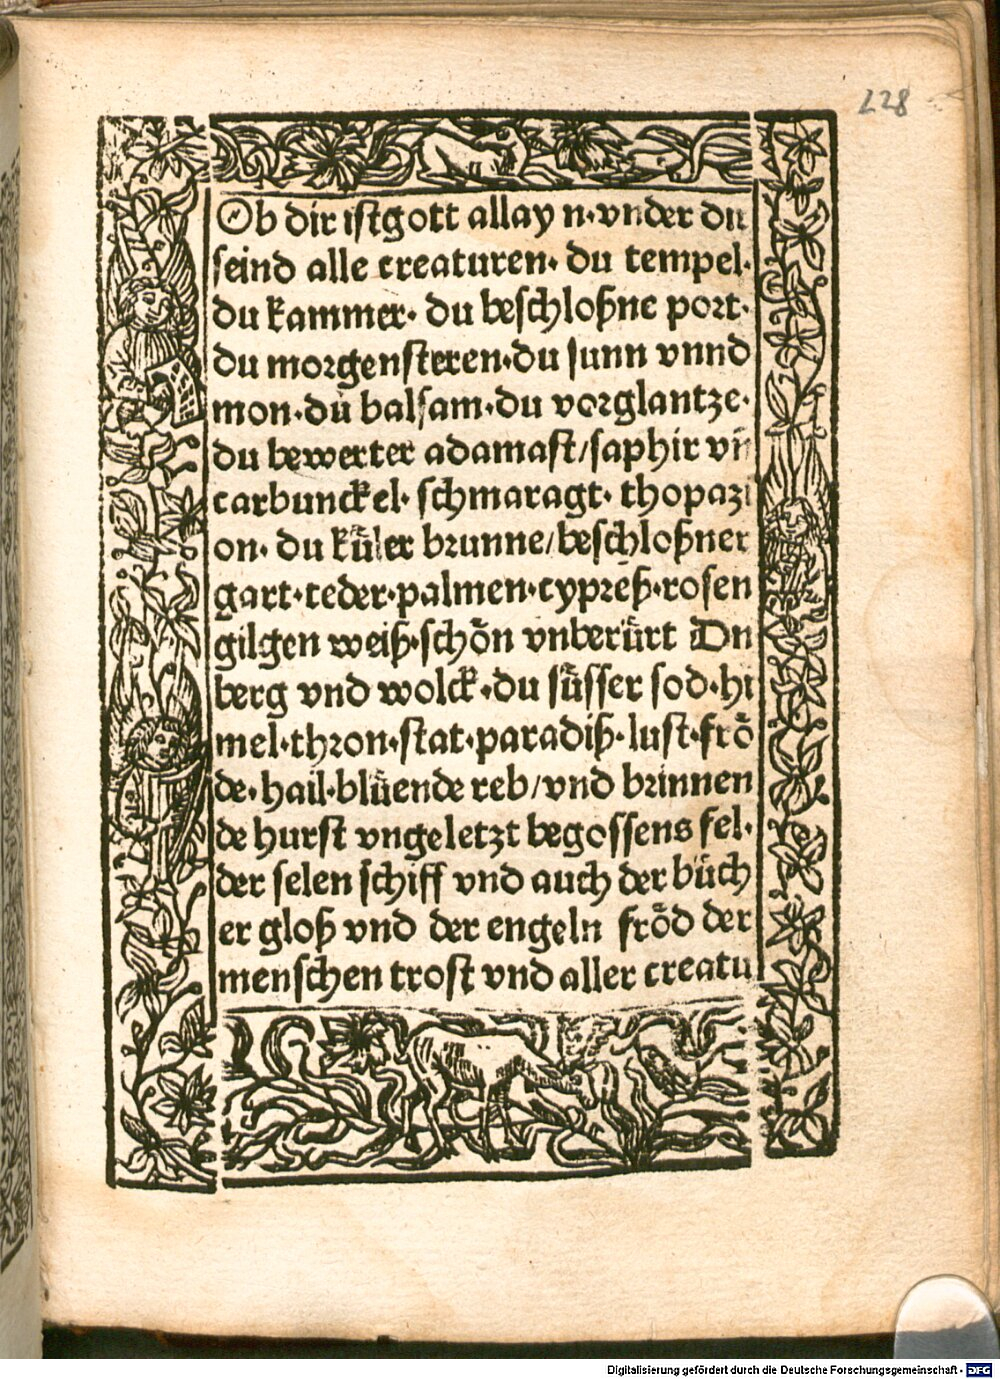 228
Ob dir ist gott allay n·vnder dir
seind alle creaturen· du tempel·
du kammer· du beschloßne port·
du morgensteren·du sunn vnnd
mon·du balsam·du vorglantze·
du bewerter adamast/saphir vñ
carbunckel· schmaragt· thopazi
on· du kuͤler brunne/beschloßner
gart·ceder·palmen·cypreß·rosen
gilgen weiß·schoͤn vnberuͤrt Du
berg vnd wolck·du suͤsser sod·hi
mel·thron·stat·paradiß·lust·froͤ
de·hail·bluͤende reb/vnd brinnen
de hurst vngeletzt begossens fel·
der selen schiff vnd auch der buͤch
er gloß vnd der engeln froͤd der
menschen trost vnd aller creatu
Digitalisierung gefördert durch die Deutsche Forschungsgemeinschaft - DFG